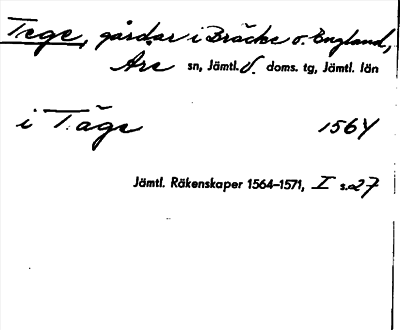 Tege, gårdar i Bräcke o. England,
Åre sn, Jämtl. V. doms. tg, Jämtl. län
i Täge 1564
Jämtl. Räkenskaper 1564–1571, I s. 27